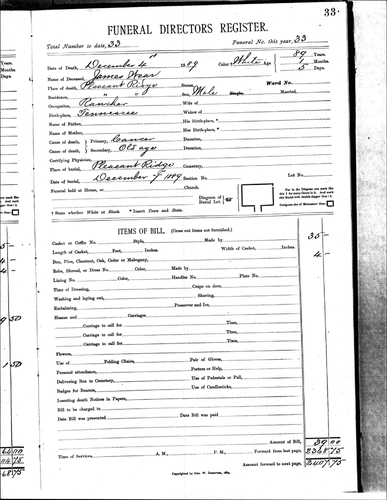 33.
FUNERAL DIRECTORS REGISTER.
Total Number to date, 33 Funeral No. this year, 33
Date of Death, December 4th 1889 Color † White Age 89 Years.
Name of Deceased, James Wear 1 Months.
Place of death, Pleasant Ridge Street, 5 Days.
Residence, " " Ward No.
Occupation, Rancher Sex, Male Single, Married,
Birth-place, Tennessee Wife of
Name of Father, Widow of
Name of Mother, His Birth-place, *
Cause of death, Primary, Cancer Her Birth-place, *
Cause of death, Secondary, Old age
Certifying Physician,
Place of burial, Pleasant Ridge Cemetery,
Date of burial, December 7th 1889 Section No. Lot No.
Funeral held at House, or Church.
Diagram of Burial Lot
† State whether White or Black. * Insert Town and State.
ITEMS OF BILL. (Cross out items not furnished.)
Casket or Coffin No. Style, Made by 35 -
Length of Casket, Feet, Inches. Width of Casket, Inches.
Box, Pine, Chestnut, Oak, Color or Mahogany, 4 -
Robe, Shroud, or Dress No. Color, Made by
Lining No. Color, Handles No. Plate No.
Time of Dressing, Crape on door,
Washing and laying out, Shaving,
Embalming, Preserver and Ice,
Hearse and Carriages
Carriage to call for Time,
Carriage to call for Time,
Carriage to call for Time,
Carriage to call for Time,
Flowers,
Use of Folding Chairs, Pair of Gloves,
Personal attendance, Porters or Help,
Delivering Box to Cemetery, Use of Pedestals or Pall,
Badges for Bearers, Use of Candlesticks,
Inserting death Notices in Papers,
Bill to be charged to
Date Bill was presented Date Bill was paid
Amount of Bill, 39 00
Time of Services A. M., P. M., Forward from last page, 2368 75
Amount forward to next page, 2407 75